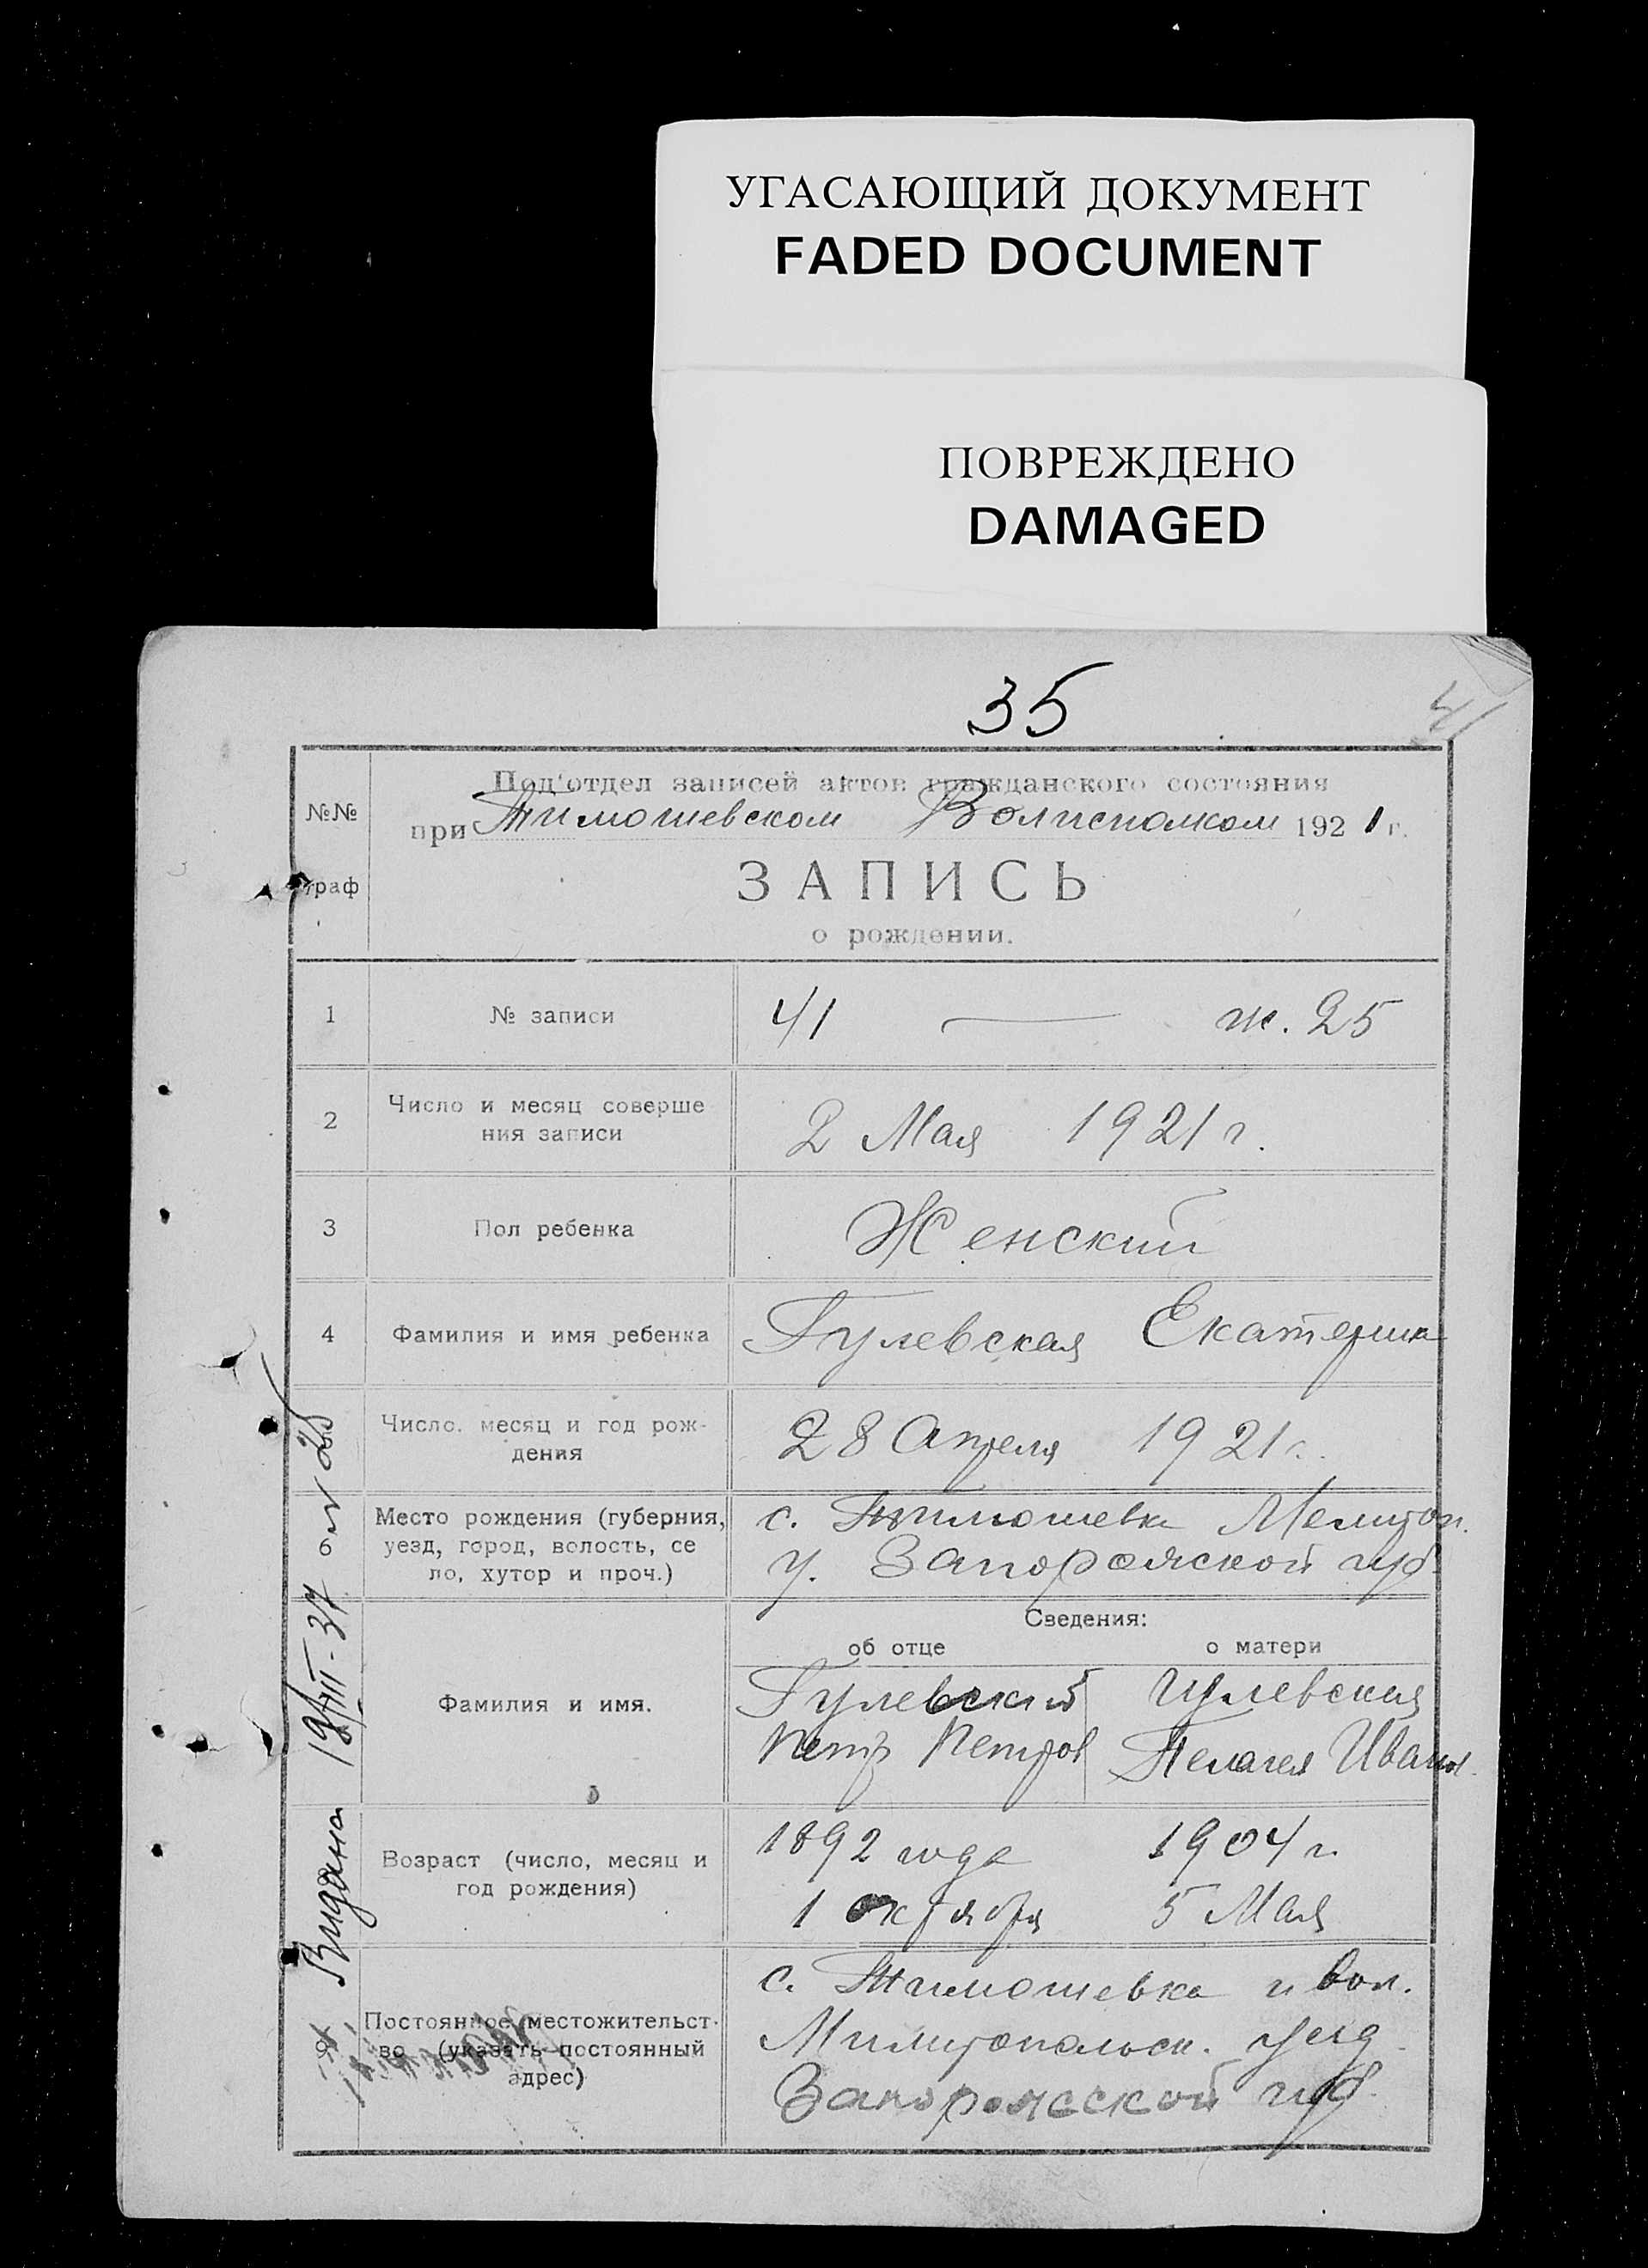 УГАСАЮЩИЙ ДОКУМЕНТ
FADED DOCUMENT
ПОВРЕЖДЕНО
DAMAGED
35
41
№№
граф
Под'отдел записей актов гражданского состояния
при Тимошевском Волисполком 1921 г.
ЗАПИСЬ
о рождении.
1 № записи 41 — ж. 25
2 Число и месяц соверше
ния записи 2 Мая 1921 г.
3 Пол ребенка Женский
4 Фамилия и имя ребенка Гулевская Екатерина
Число. месяц и год рож-
дения 28 Апреля 1921 г.
6 Место рождения (губерния,
уезд, город, волость, се
ло, хутор и проч.)
с. Тимошевка Мелитоп.
у. Запорожской губ.
Сведения:
об отце о матери
Фамилия и имя.
Гулевский
Петр Петров
Гулевская
Пелагея Иванов.
Возраст (число, месяц и
год рождения)
1892 года
1 октября
1904 г.
5 Мая
Постоянное местожительст-
во (указать постоянный
адрес)
с. Тимошевка и вол.
Милитопольск. уезд.
Запорожсской губ.
Видана 19/VIII-37